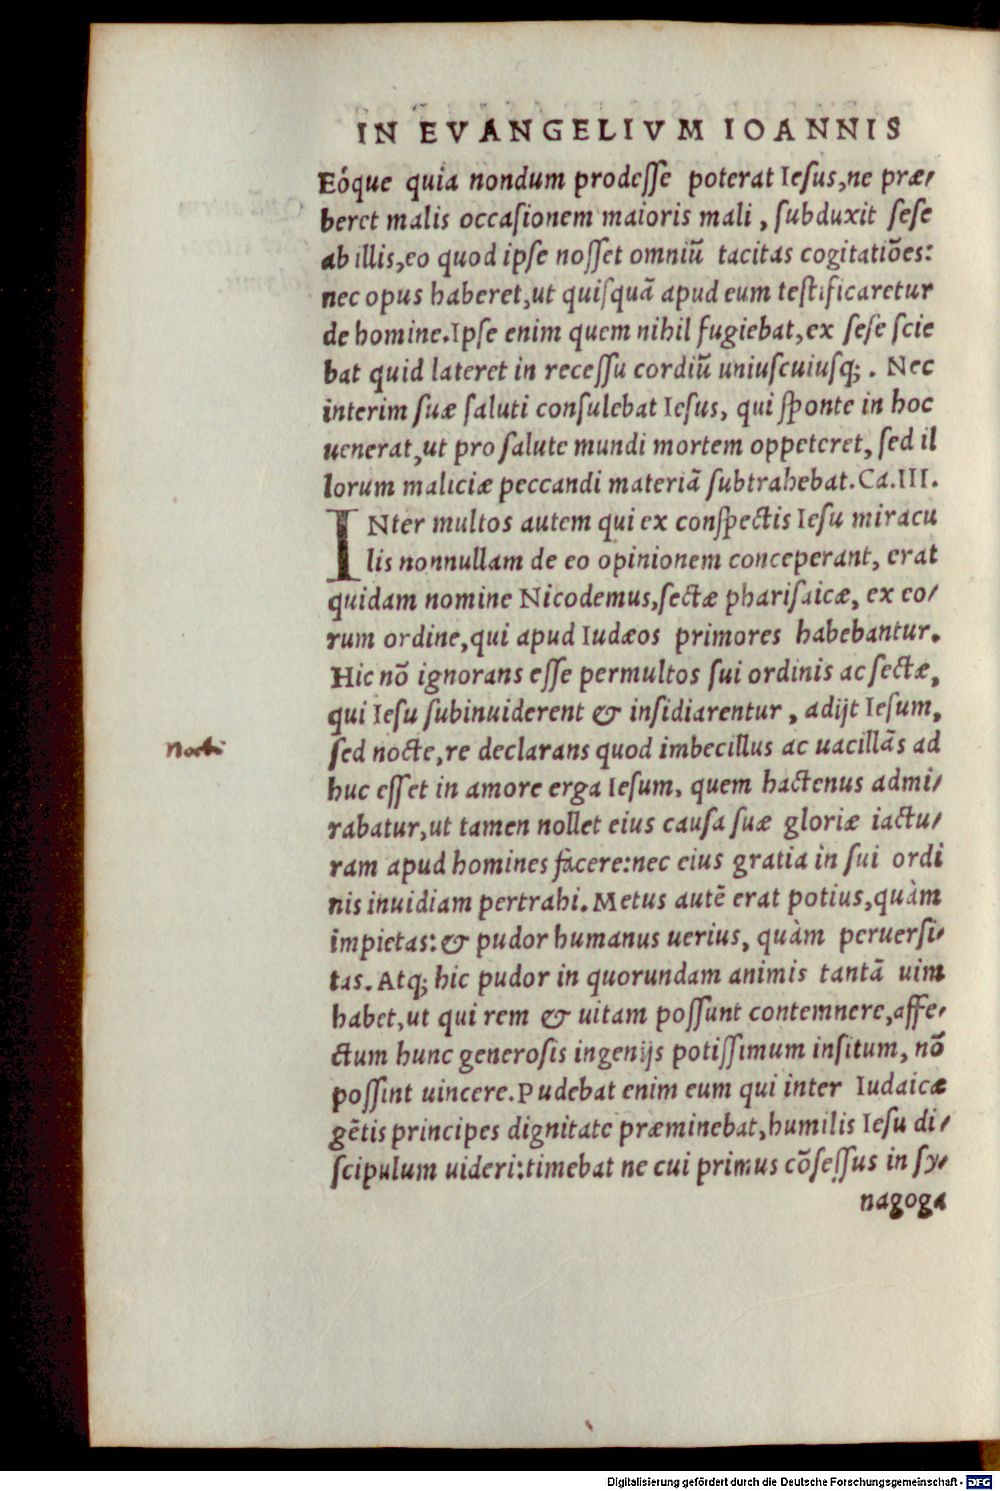 IN EVANGELIVM IOANNIS
Eóque quia nondum prodesse poterat Iesus, ne præ-
beret malis occasionem maioris mali, subduxit sese
ab illis, eo quod ipse nosset omniũ tacitas cogitatiões:
nec opus haberet, ut quisquã apud eum testificaretur
de homine. Ipse enim quem nihil fugiebat, ex sese scie
bat quid lateret in recessu cordiũ uniuscuiusq;. Nec
interim suæ saluti consulebat Iesus, qui sponte in hoc
uenerat, ut pro salute mundi mortem oppeteret, sed il
lorum maliciæ peccandi materiã subtrahebat. Ca. III.
INter multos autem qui ex conspectis Iesu miracu
lis nonnullam de eo opinionem conceperant, erat
quidam nomine Nicodemus, sectæ pharisaicæ, ex eo-
rum ordine, qui apud Iudæos primores habebantur.
Hic nõ ignorans esse permultos sui ordinis ac sectæ,
qui Iesu subinuiderent & insidiarentur, adijt Iesum,
sed nocte, re declarans quod imbecillus ac uacillãs ad
huc esset in amore erga Iesum, quem hactenus admi-
rabatur, ut tamen nollet eius causa suæ gloriæ iactu-
ram apud homines facere: nec eius gratia in sui ordi
nis inuidiam pertrahi. Metus autẽ erat potius, quàm
impietas: & pudor humanus uerius, quàm peruersi-
tas. Atq; hic pudor in quorundam animis tantã uim
habet, ut qui rem & uitam possunt contemnere, affe-
ctum hunc generosis ingenijs potissimum insitum, nõ
possint uincere. Pudebat enim eum qui inter Iudaicæ
gẽtis principes dignitate præminebat, humilis Iesu di-
scipulum uideri: timebat ne cui primus cõsessus in sy-
nagoga
Digitalisierung gefördert durch die Deutsche Forschungsgemeinschaft - DFG